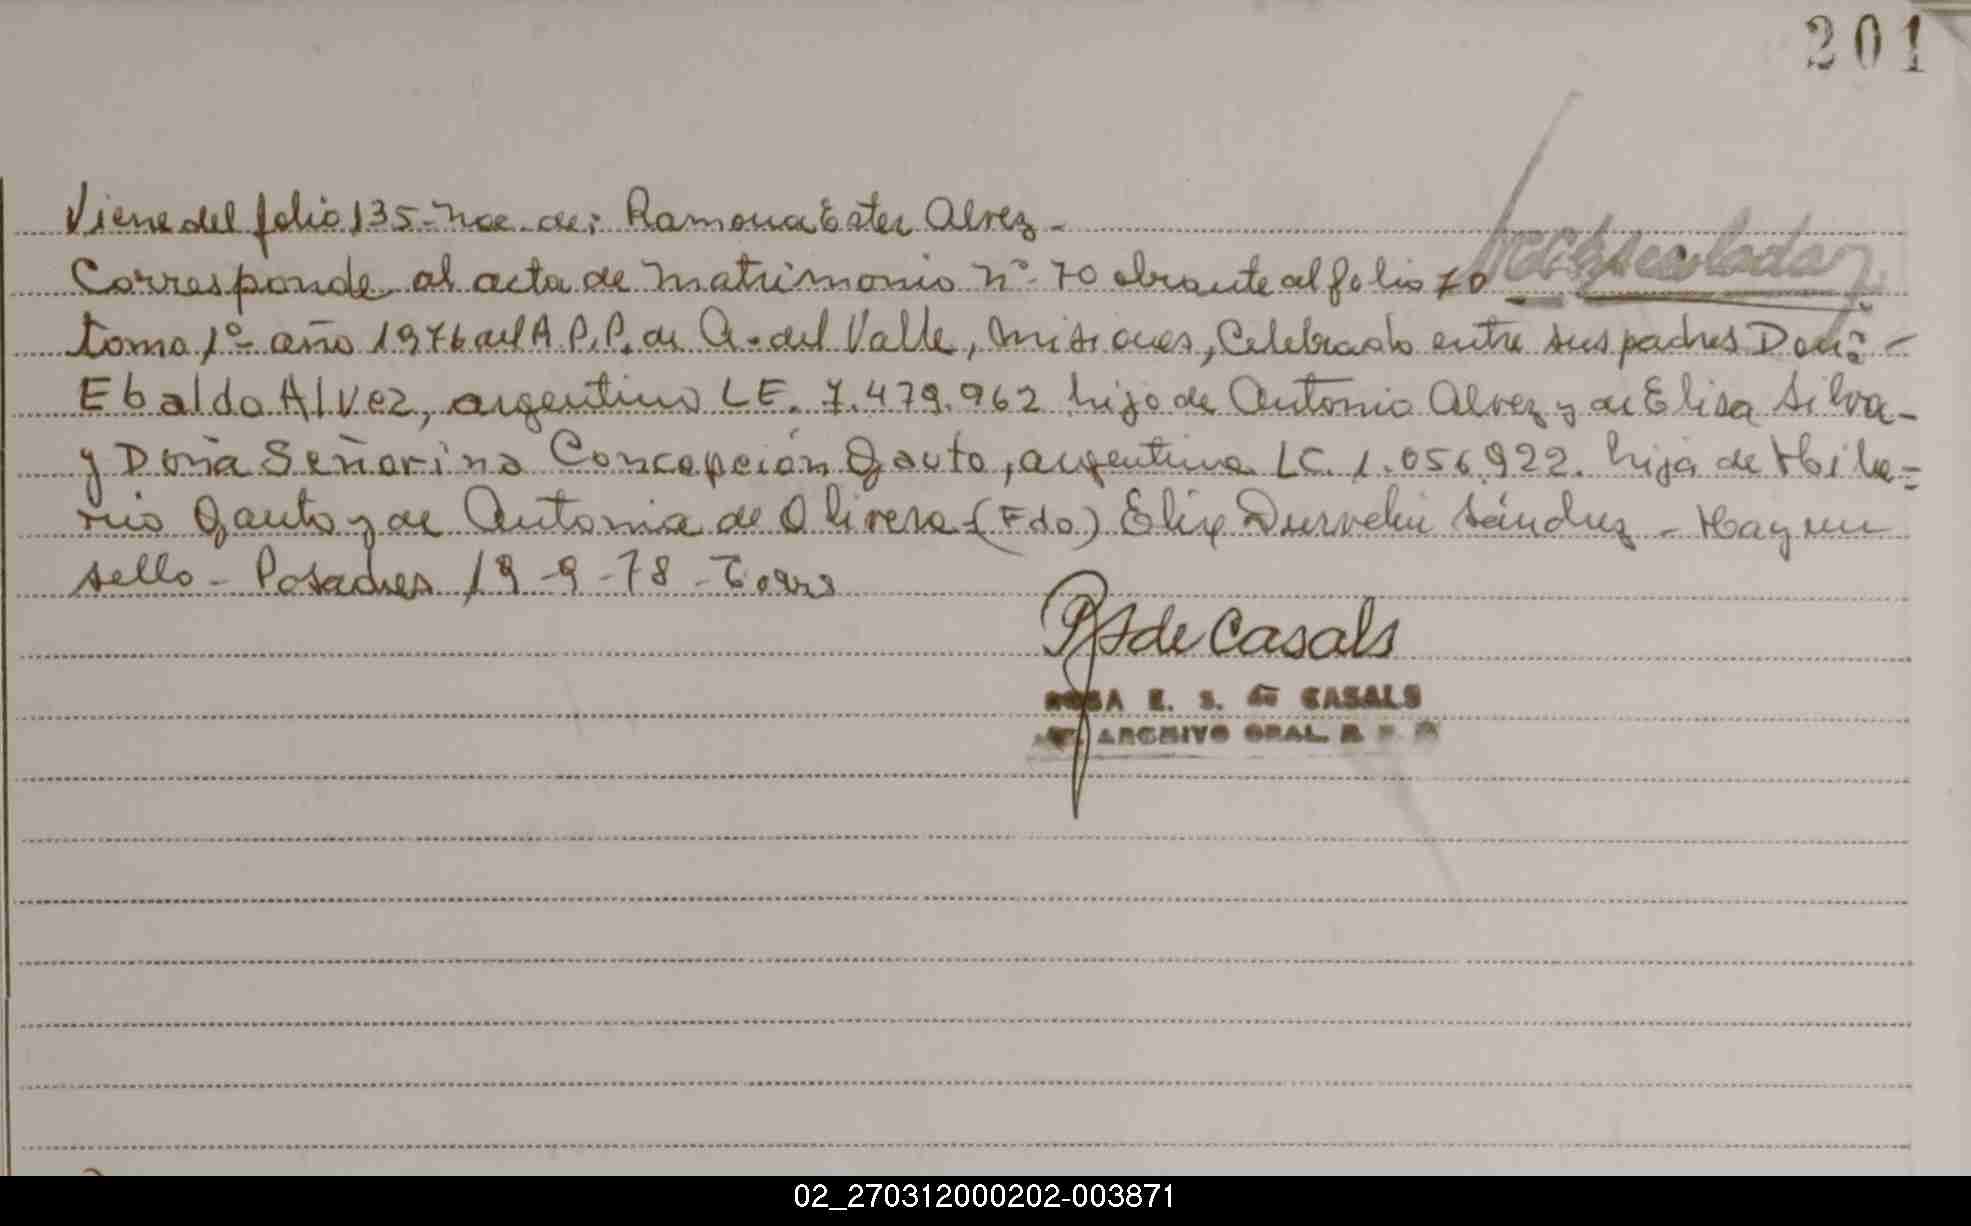 201
Viene del folio 135-Nac. de: Ramona Ester Alvez-
Corresponde al acta de Matrimonio Nº 70 obrante al folio 70
tomo 1º- año 1976 del A P.P. de A. del Valle, Misiones, Celebrado entre sus padres Don:-
Ebaldo Alvez, argentino LE. 7.479.962 hijo de Antonio Alvez y de Elisa Silva-
y Doña Señorina Concepción Gauto, argentina LC. 1.056.922. hija de Hila=
rio Gauto y de Antonia de Olivera-(Fdo) Sánchez - Hay un
sello - Posadas 19-9-78 -
de Casals
ROSA E. S. de CASALS
ARCHIVO GRAL. R. P. P.
02_270312000202-003871